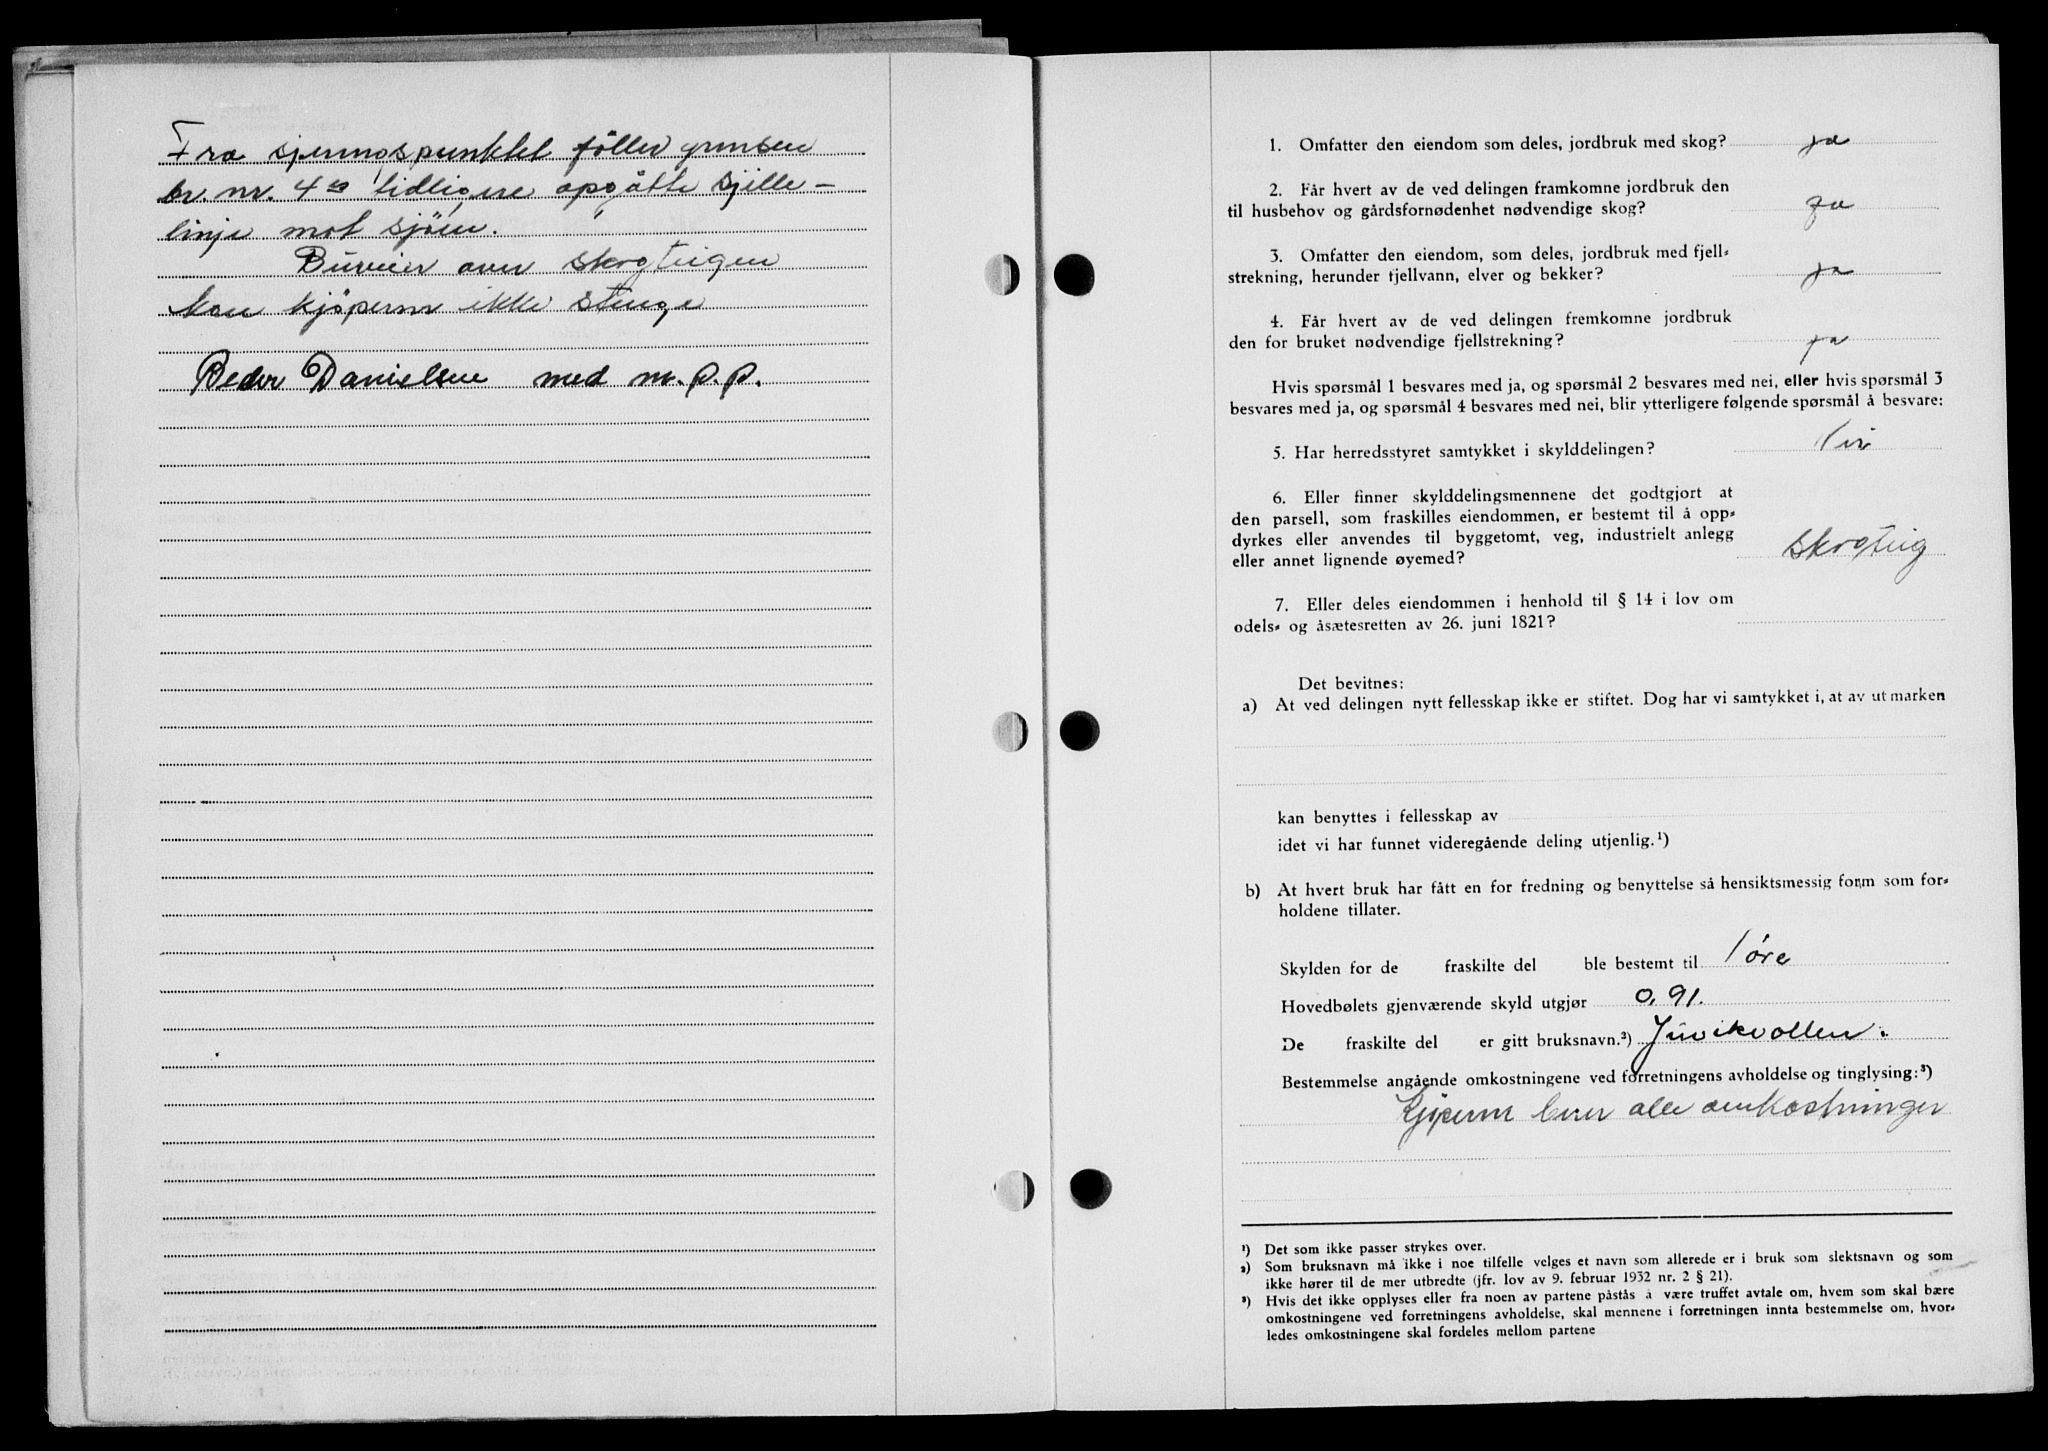 Fra sjeringspunktet föller grensen
br. nr. 4es tidligere opgåtte sjille-
linje mot sjöen.
Buveier over skogteigen
kan kjöperen ikke stenge
Peder Danielsen med m. p. p.
1. Omfatter den eiendom som deles, jordbruk med skog? ja
2. Får hvert av de ved delingen framkomne jordbruk den
til husbehov og gårdsfornødenhet nødvendige skog? ja
3. Omfatter den eiendom, som deles, jordbruk med fjell-
strekning, herunder fjellvann, elver og bekker? ja
4. Får hvert av de ved delingen fremkomne jordbruk
den for bruket nødvendige fjellstrekning? ja
Hvis spørsmål 1 besvares med ja, og spørsmål 2 besvares med nei, eller hvis spørsmål 3
besvares med ja, og spørsmål 4 besvares med nei, blir ytterligere følgende spørsmål å besvare:
5. Har herredsstyret samtykket i skylddelingen? Nei
6. Eller finner skylddelingsmennene det godtgjort at
den parsell, som fraskilles eiendommen, er bestemt til å opp-
dyrkes eller anvendes til byggetomt, veg, industrielt anlegg
eller annet lignende øyemed? Skogteig
7. Eller deles eiendommen i henhold til § 14 i lov om
odels- og åsætesretten av 26. juni 1821?
Det bevitnes:
a) At ved delingen nytt fellesskap ikke er stiftet. Dog har vi samtykket i, at av utmarken
kan benyttes i fellesskap av
idet vi har funnet videregående deling utjenlig.¹)
b) At hvert bruk har fått en for fredning og benyttelse så hensiktsmessig form som for-
holdene tillater.
Skylden for de fraskilte del ble bestemt til 1 øre
Hovedbølets gjenværende skyld utgjør 0,91.
De fraskilte del er gitt bruksnavn.²) Juvikvollen.
Bestemmelse angående omkostningene ved forretningens avholdelse og tinglysing:³)
Kjøperen berer alle omkostninger
¹) Det som ikke passer strykes over.
²) Som bruksnavn må ikke i noe tilfelle velges et navn som allerede er i bruk som slektsnavn og som
ikke hører til de mer utbredte (jfr. lov av 9. februar 1932 nr. 2 § 21).
³) Hvis det ikke opplyses eller fra noen av partene påstås å være truffet avtale om, hvem som skal bære
omkostningene ved forretningens avholdelse, skal mennene i forretningen innta bestemmelse om, hvor-
ledes omkostningene skal fordeles mellom partene